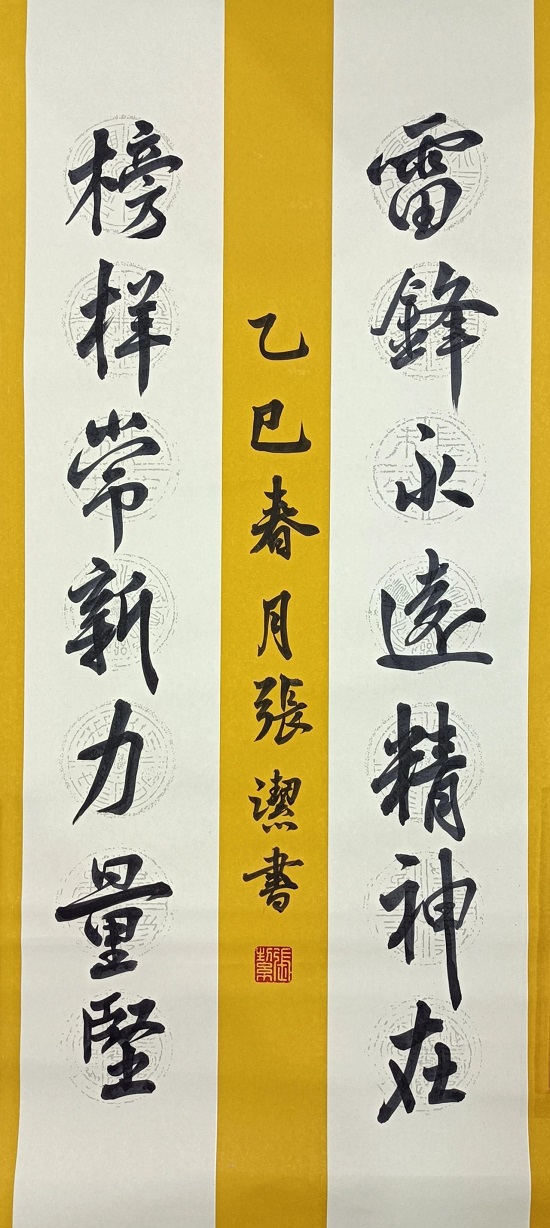 雷鋒永遠精神在
榜样常新力量堅
乙巳春月張潔書